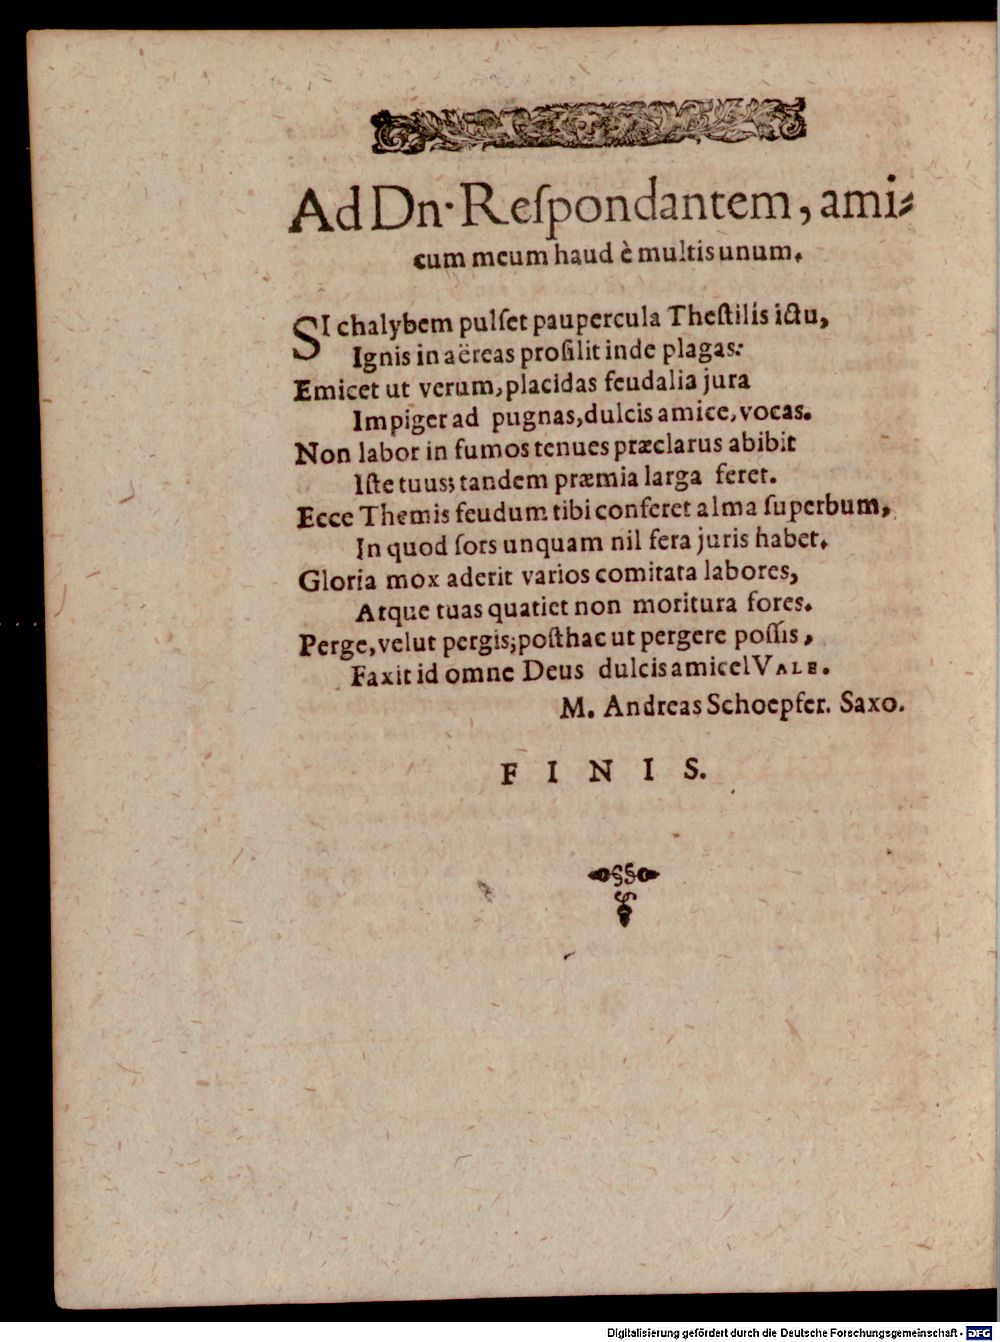 Ad Dn. Reſpondantem, ami-
cum meum haud è multis unum.
SI chalybem pulſet paupercula Theſtilis ictu,
Ignis in aëreas proſilit inde plagas:
Emicet ut verum, placidas feudalia jura
Impiger ad pugnas, dulcis amice, vocas.
Non labor in fumos tenues præclarus abibit
Iſte tuus; tandem præmia larga feret.
Ecce Themis feudum tibi conferet alma ſuperbum,
In quod ſors unquam nil fera juris habet.
Gloria mox aderit varios comitata labores,
Atque tuas quatiet non moritura fores.
Perge, velut pergis; poſthac ut pergere poſſis,
Faxit id omne Deus dulcis amice! VALE.
M. Andreas Schoepfer. Saxo.
F I N I S.
Digitalisierung gefördert durch die Deutsche Forschungsgemeinschaft - DFG